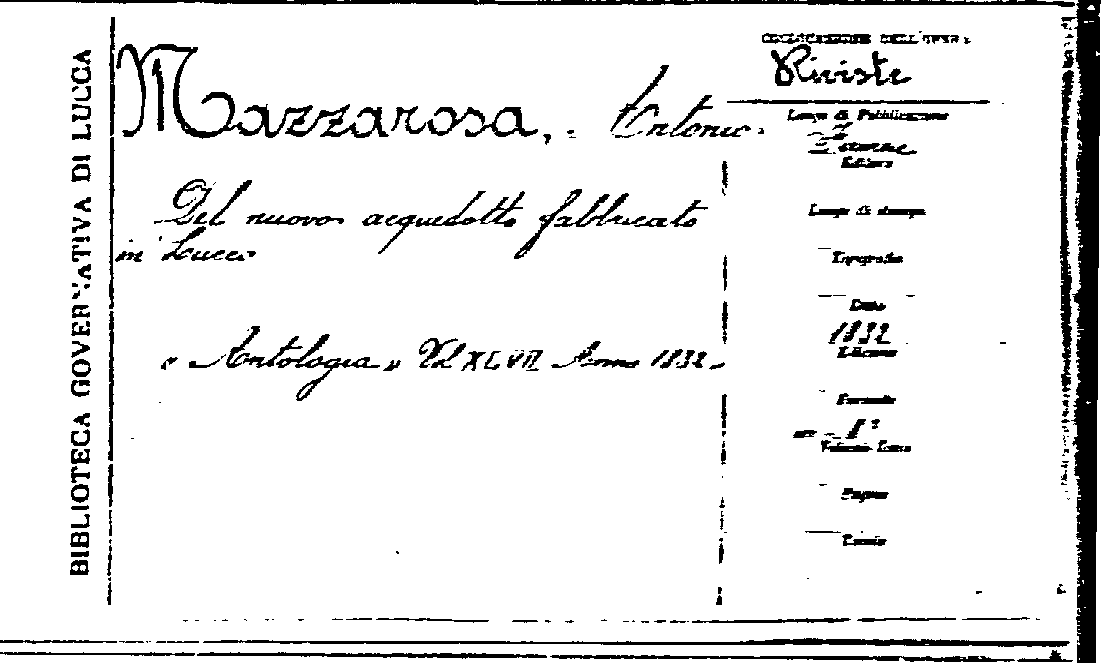 BIBLIOTECA GOVERNATIVA DI LUCCA
Mazzarosa, Antonio.
Del nuovo acquedotto fabbricato
in Lucca
« Antologia » Vol XLVII Anno 1832.
COLLOCAZIONE DELL'OPERA
Riviste
Luogo di Pubblicazione
Editore
Luogo di stampa
Tipografia
Data
1832
Edizione
Formato
8°
Volume-Tomo
Pagine